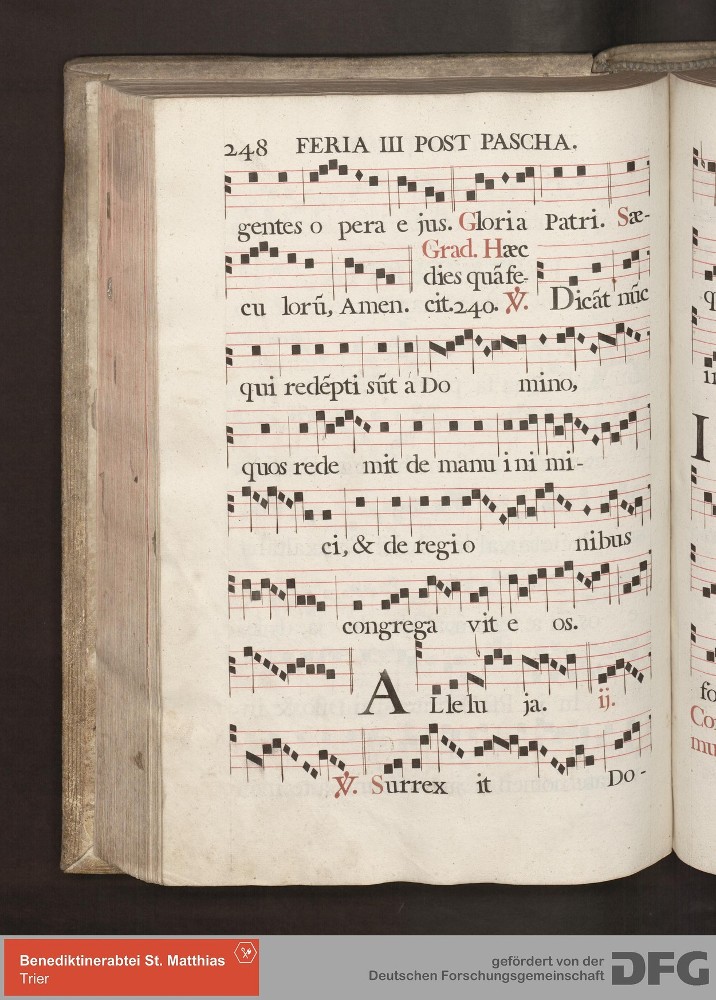 248 FERIA III POST PASCHA.
gentes o pera e jus. Gloria Patri. Sæ-
Grad. Hæc
dies quã fe-
cu lorũ, Amen. cit. 240. ℣. Dicãt nũc
qui redẽpti sũt á Do mino,
quos rede mit de manu i ni mi-
ci, & de regi o nibus
congrega vit e os.
ALlelu ja. ij.
℣. Surrex it Do-
Benediktinerabtei St. Matthias
Trier
gefördert von der
Deutschen Forschungsgemeinschaft
DFG